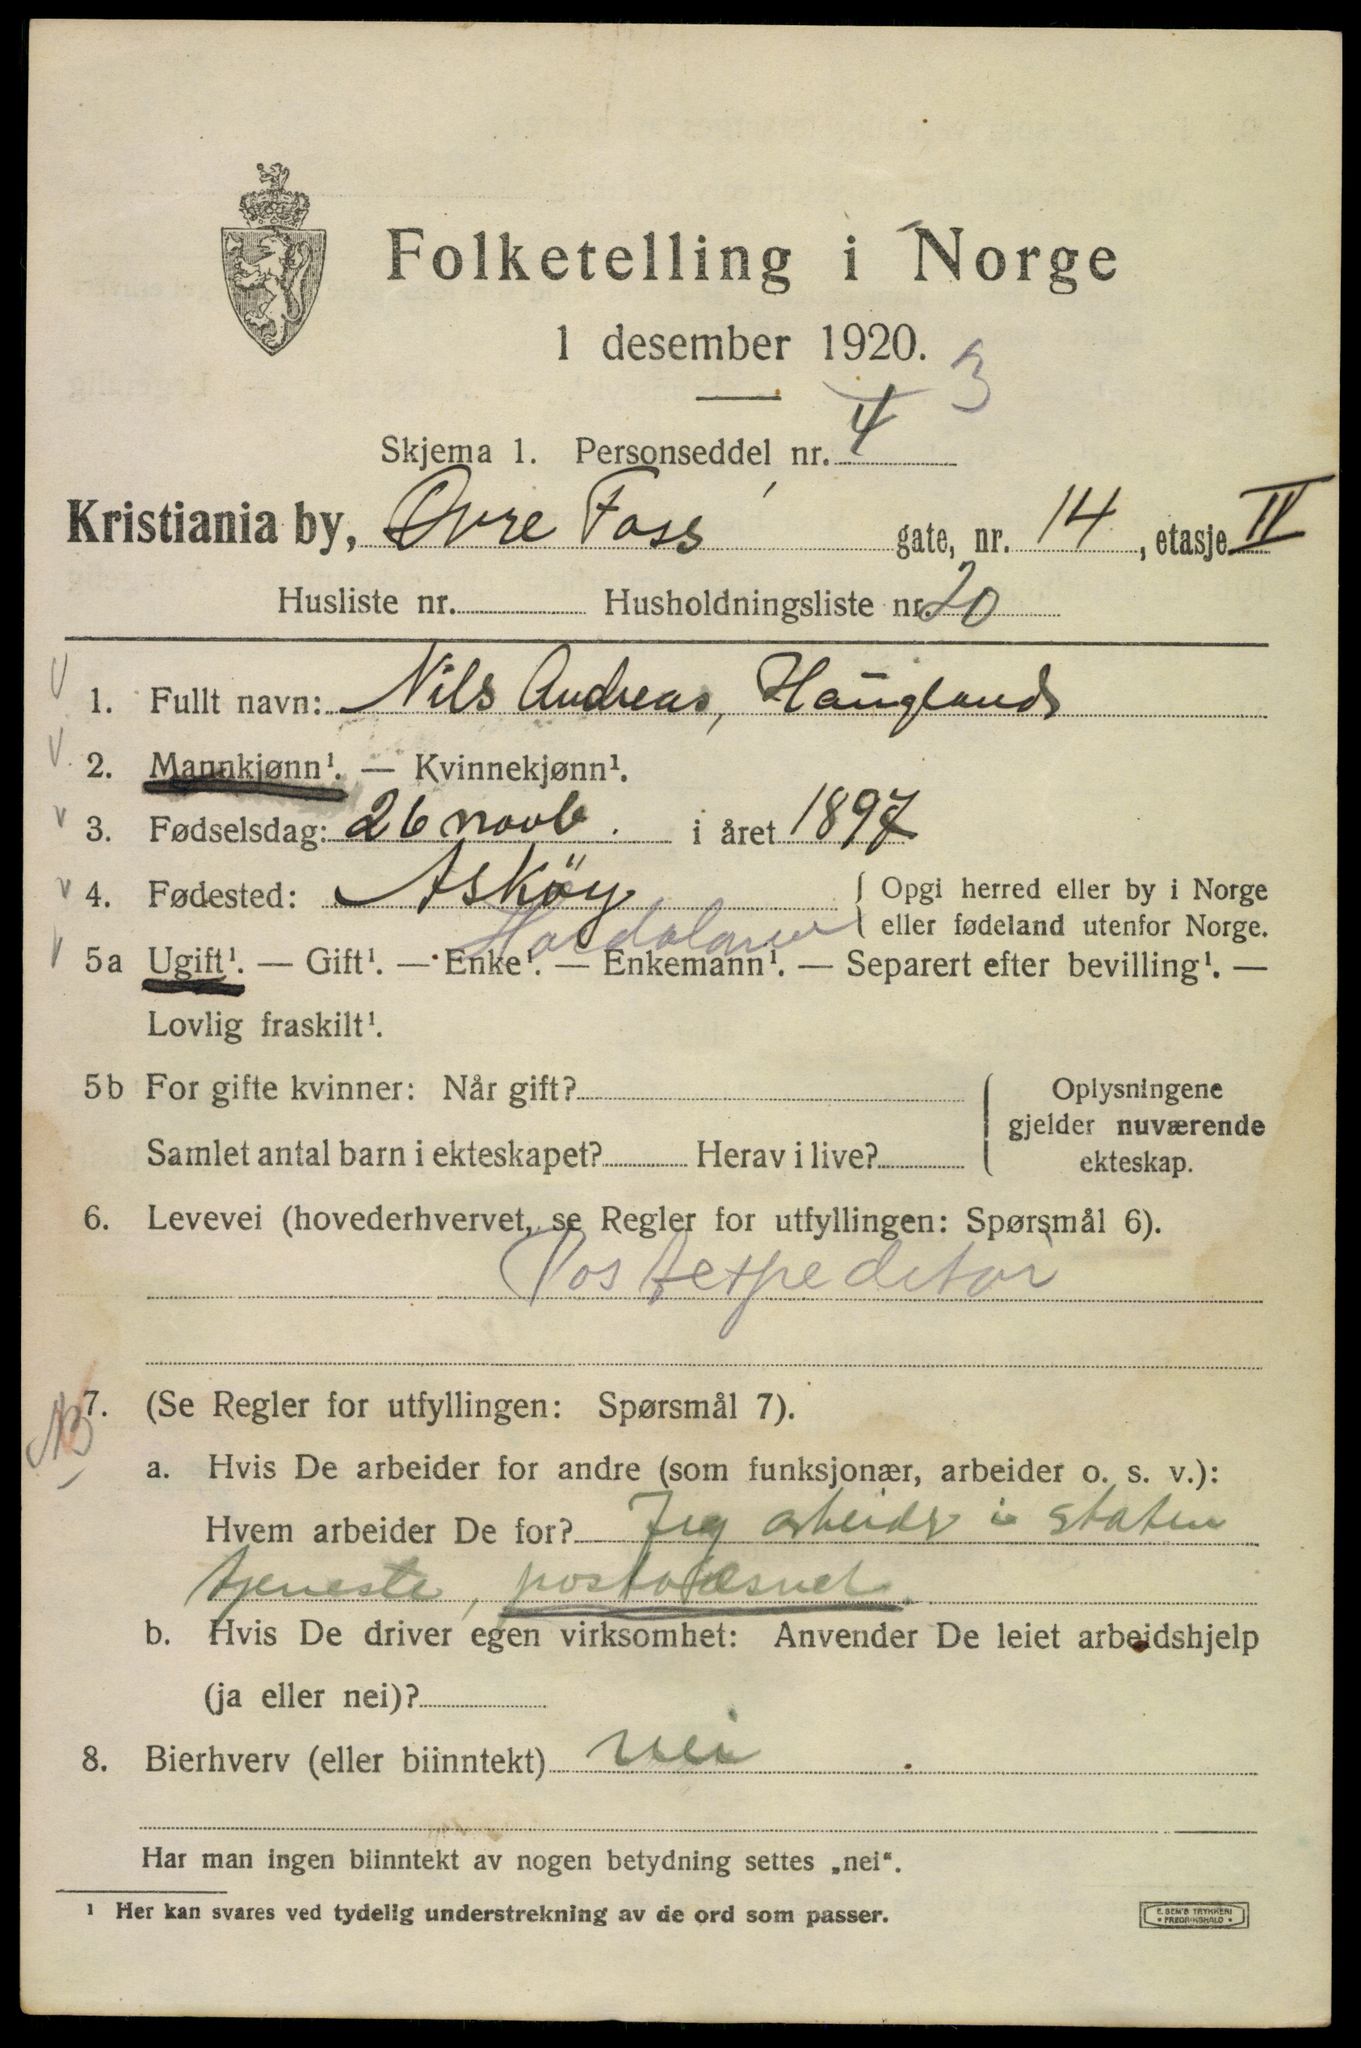 Folketelling i Norge
1 desember 1920.
3
Skjema 1. Personseddel nr. 4
Kristiania by, Øvre Foss gate, nr. 14, etasje IV
Husliste nr. Husholdningsliste nr. 20
1. Fullt navn: Nils Andreas, Haugland
2. Mannkjønn¹. — Kvinnekjønn¹.
3. Fødselsdag: 26 novb. i året 1897
4. Fødested: Asköy { Opgi herred eller by i Norge
Hordaland eller fødeland utenfor Norge.
5a Ugift¹. — Gift¹. — Enke¹. — Enkemann¹. — Separert efter bevilling¹. —
Lovlig fraskilt¹.
5b For gifte kvinner: Når gift? Oplysningene
gjelder nuværende
Samlet antal barn i ekteskapet? Herav i live? ekteskap.
6. Levevei (hovederhvervet, se Regler for utfyllingen: Spørsmål 6).
Postexpeditør
NB 7. (Se Regler for utfyllingen: Spørsmål 7).
a. Hvis De arbeider for andre (som funksjonær, arbeider o. s. v.):
Hvem arbeider De for? Jeg arbeider i staten
tjeneste, postvæsnet.
b. Hvis De driver egen virksomhet: Anvender De leiet arbeidshjelp
(ja eller nei)?
8. Bierhverv (eller biinntekt) nei
Har man ingen biinntekt av nogen betydning settes „nei“.
¹ Her kan svares ved tydelig understrekning av de ord som passer.
E. SEM'S TRYKKERI
FREDRIKSHALD